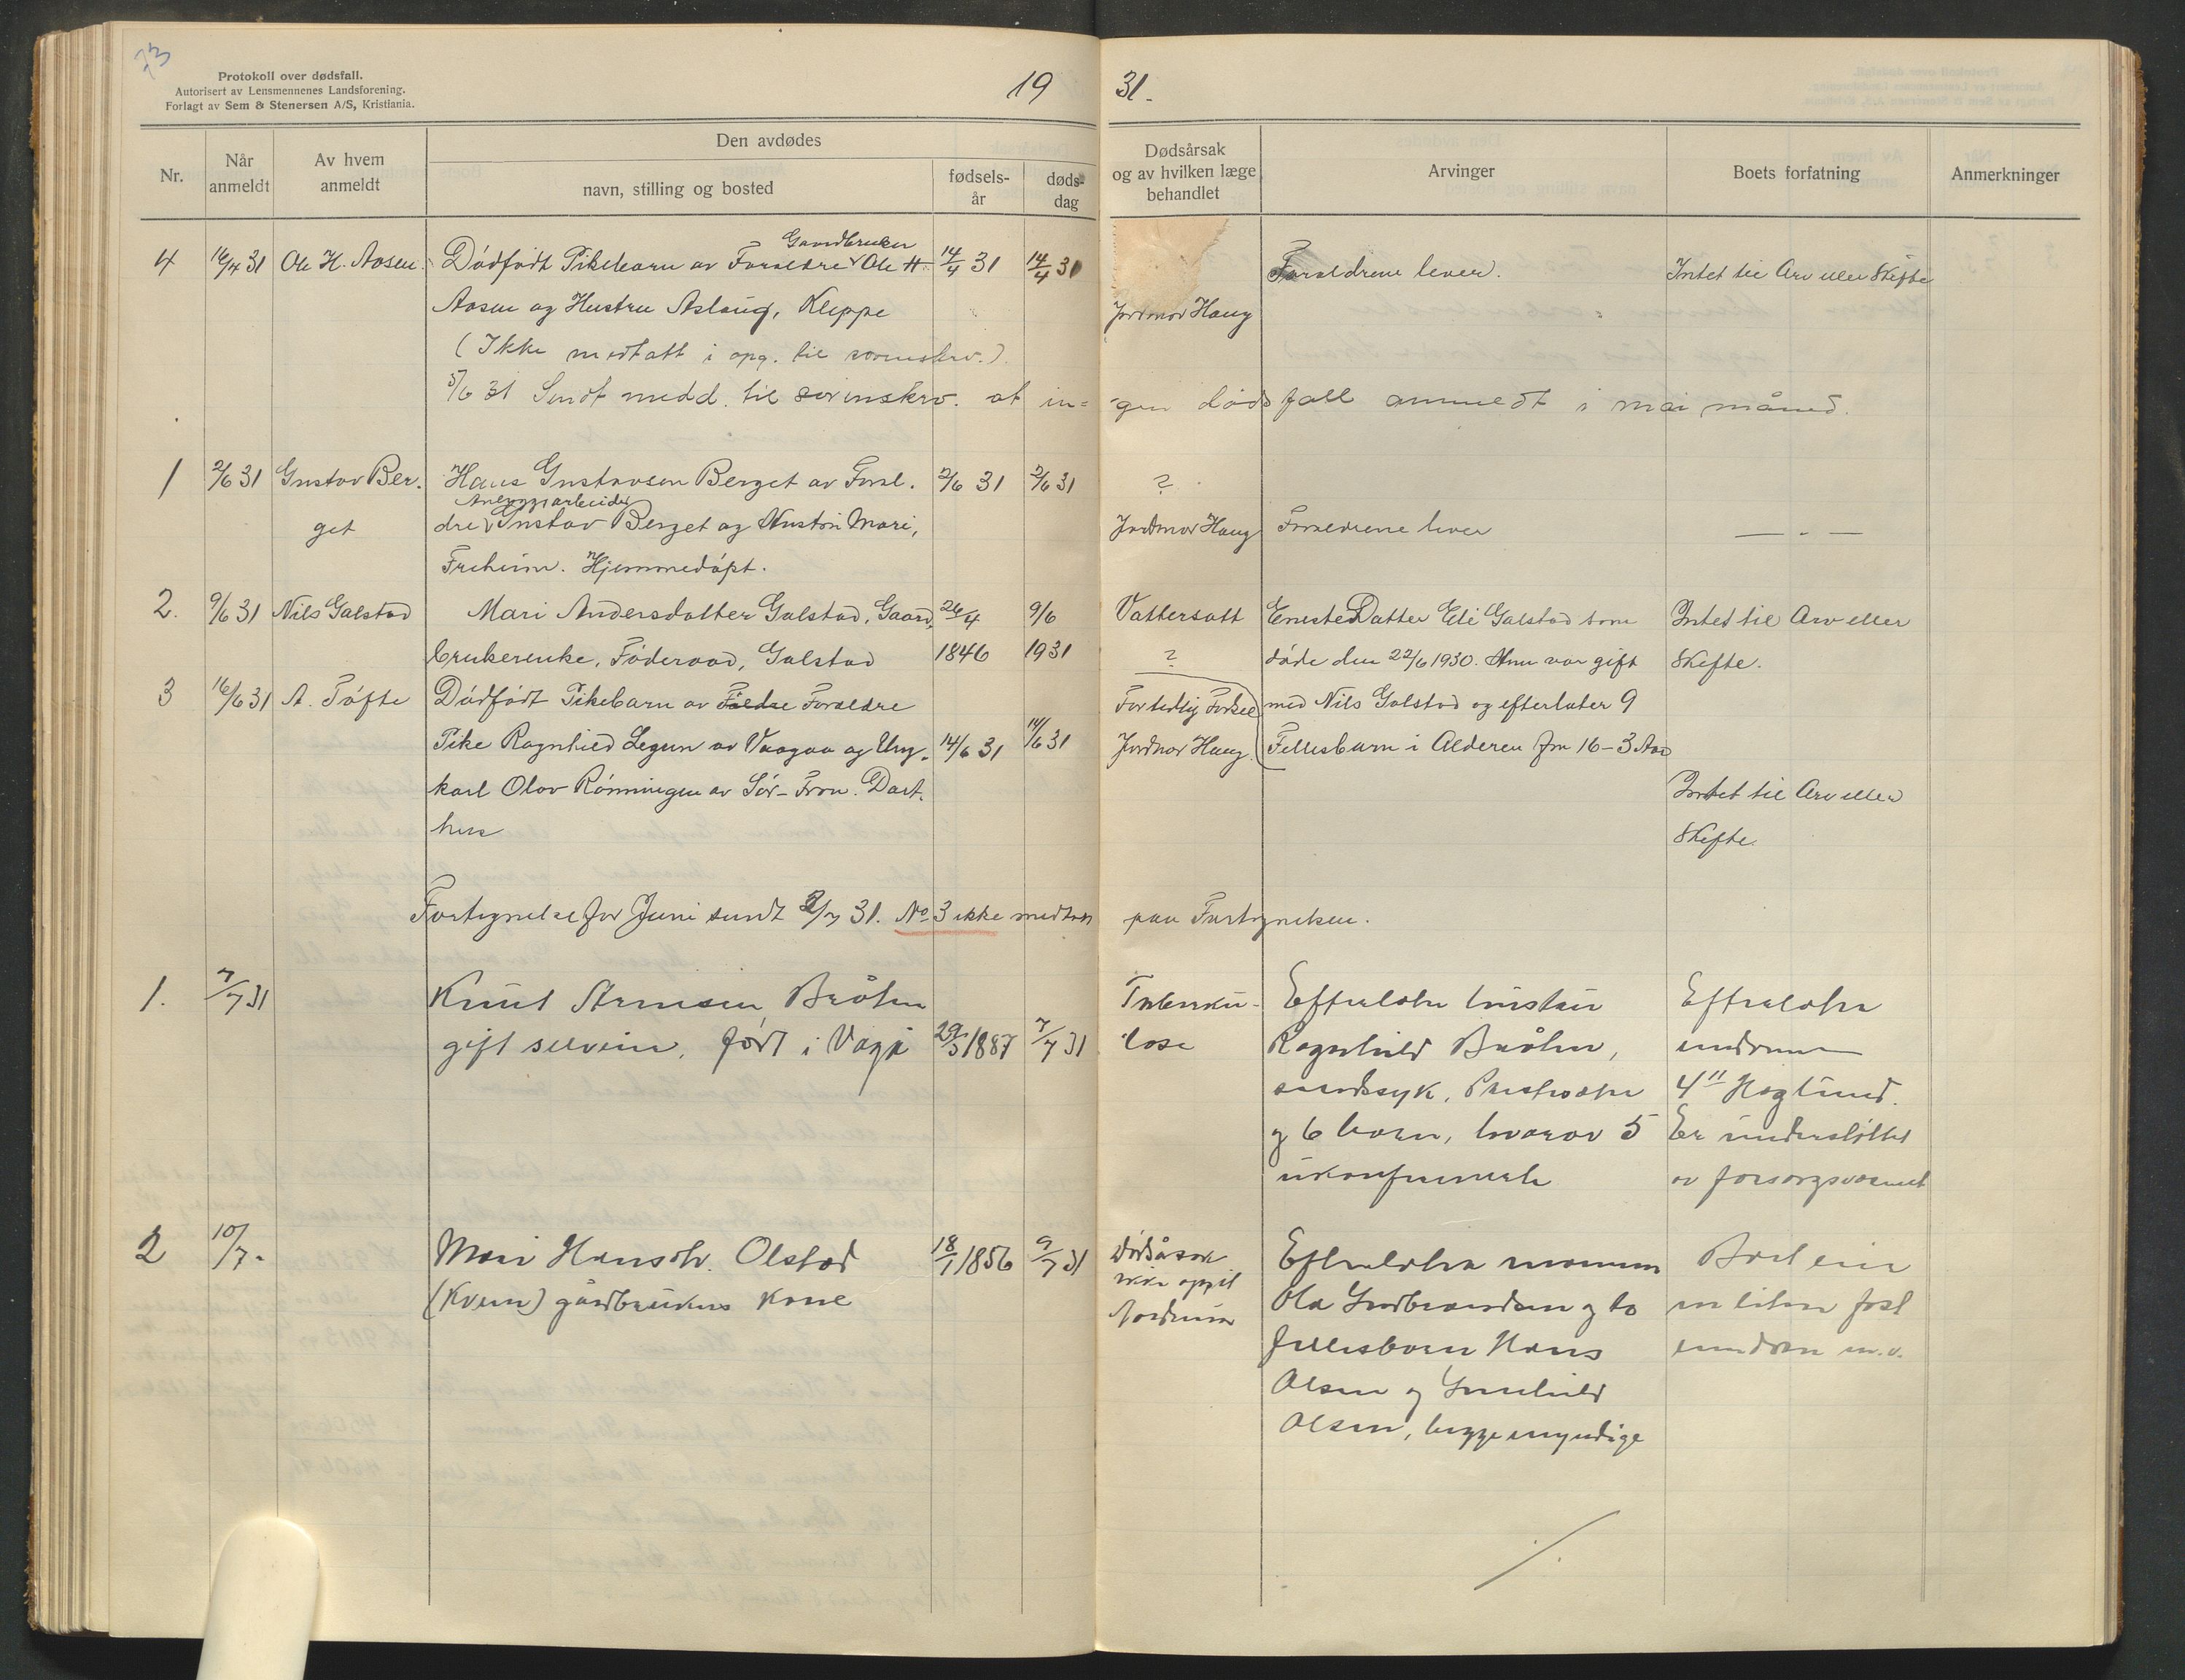 73
Protokoll over dødsfall.
Autorisert av Lensmennenes Landsforening.
Forlagt av Sem & Stenersen A/S, Kristiania.
19 31.
Nr.
Når anmeldt
Av hvem anmeldt
Den avdødes
navn, stilling og bosted
fødsels-år
døds-dag
Dødsårsak og av hvilken læge behandlet
Arvinger
Boets forfatning
Anmerkninger
4 16/4 31 Ole H. Aasen Dødfødt Pikebarn av Forældre Gardbruker Ole H. 14/4 31 14/4 31 Forældrene lever. Intet til Arv eller Skifte
Aasen og Hustru Aslaug, Kleppe Jordmor Haug
(Ikke medtatt i opg. til sorenskrv.)
5/6 31 Sendt medd. til sorenskrv. at in= gen dødsfall anmeldt i mai måned.
1 2/6 31 Gustav Ber- Hans Gustavsen Berget av Foræl- 2/6 31 2/6 31 ?
get dre Anleggsarbeider Gustav Berget og Hustru Mari, Jordmor Haug Forældrene lever — " —
Freheim. Hjemmedøpt.
2. 9/6 31 Nils Galstad Mari Andersdatter Galstad, Gaard- 26/4 9/6 Vattersott Eneste Datter Eli Galstad som Intet til Arv eller
brukerenke, Føderaad, Galstad 1846 1931 ? døde den 22/6 1930. Hun var gift Skifte.
3 16/6 31 A. Tøfte Dødfødt Pikebarn av Foeldre Forældre For tidlig Fødsel med Nils Galstad og efterlater 9
Pike Ragnhild Legun av Vaagaa og Ung- 14/6 31 14/6 31 Jordmor Haug Fellesbarn i Alderen fra 16-3 Aar
karl Olov Rønningen av Sør-Fron. Dart- Intet til Arv eller
hus Skifte.
Fortegnelse for Juni sendt 2/7 31. No 3 ikke medtat paa Fortegnelsen.
1. 7/7 31 Knut Bråten Tuberku- Efterlater hustru Efterlater
gift født i Vågå 29/5 1887 7/7 31 lose Ragnhild Bråten, eiendommen
sindssyk, 4" Haglund.
og 6 barn, hvorav 5 Er understøttet
ukonfirmerte av forsorgsvæsenet
2 10/7 - Mari Hansdtr. Olstad 18/1 1856 9/7 31 Dødsårsak Efterlater mannen Boet eier
(Kvam) gårdbrukers kone ikke oppgit Ola Gudbrandsen og to en liten fast
fellesbarn Hans eiendom m.v.
Olsen og Gunhild
Olsen, begge myndige
./.